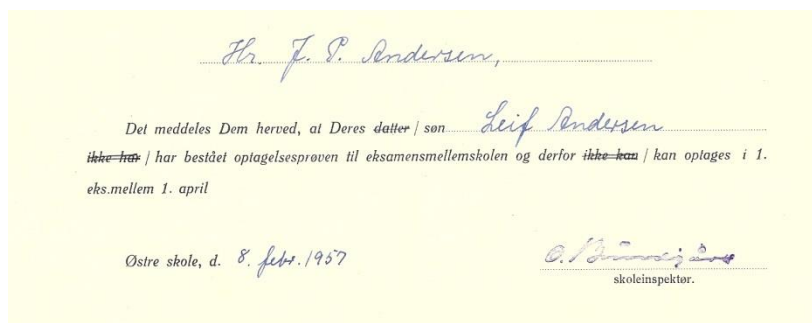 Hr. J. P. Andersen,
Det meddeles Dem herved, at Deres datter / søn Leif Andersen
ikke har / har bestået optagelsesprøven til eksamensmellemskolen og derfor ikke kan / kan optages i 1.
eks.mellem 1. april
Østre skole, d. 8. febr. 1957
O.
skoleinspektør.